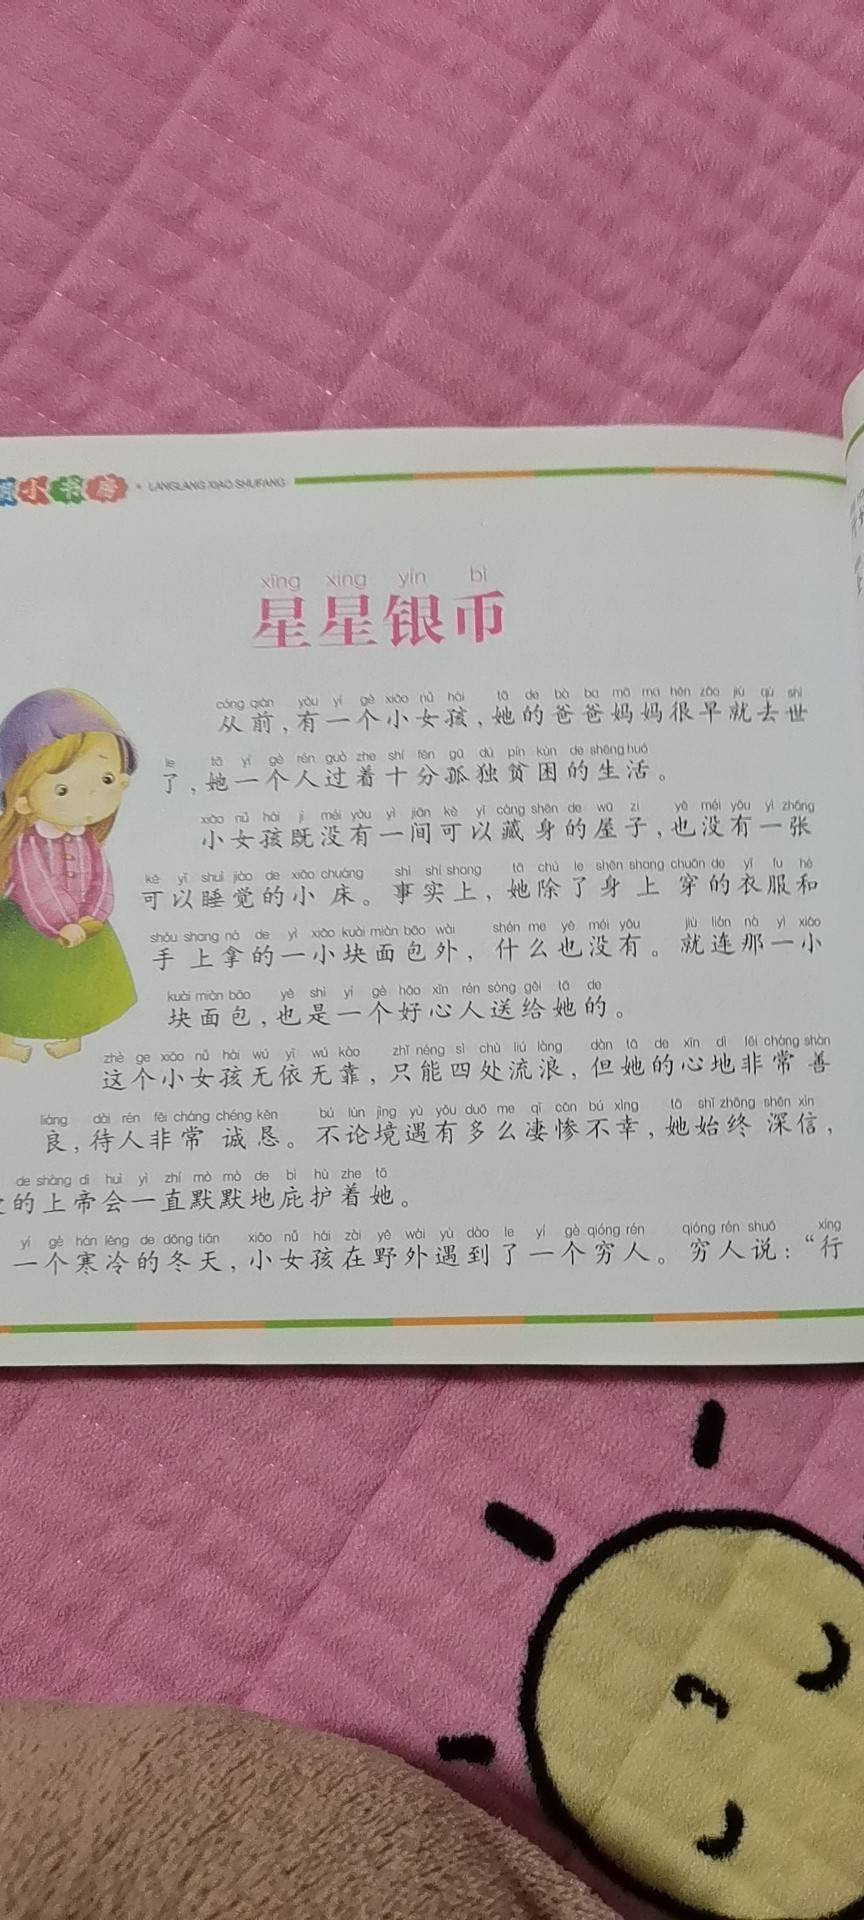 小书房 · LANGLANG XIAO SHUFANG
xīng xing yín bì
星星银币
cóng qián yǒu yí gè xiǎo nǚ hái tā de bà ba mā ma hěn zǎo jiù qù shì
从前,有一个小女孩,她的爸爸妈妈很早就去世
le tā yí gè rén guò zhe shí fēn gū dú pín kùn de shēng huó
了,她一个人过着十分孤独贫困的生活。
xiǎo nǚ hái jì méi yǒu yì jiān kě yǐ cáng shēn de wū zi yě méi yǒu yì zhāng
小女孩既没有一间可以藏身的屋子,也没有一张
kě yǐ shuì jiào de xiǎo chuáng shì shí shang tā chú le shēn shang chuān de yī fu hé
可以睡觉的小床。事实上,她除了身上穿的衣服和
shǒu shang ná de yì xiǎo kuài miàn bāo wài shén me yě méi yǒu jiù lián nà yì xiǎo
手上拿的一小块面包外,什么也没有。就连那一小
kuài miàn bāo yě shì yí gè hǎo xīn rén sòng gěi tā de
块面包,也是一个好心人送给她的。
zhè ge xiǎo nǚ hái wú yī wú kào zhǐ néng sì chù liú làng dàn tā de xīn dì fēi cháng shàn
这个小女孩无依无靠,只能四处流浪,但她的心地非常善
liáng dài rén fēi cháng chéng kěn bú lùn jìng yù yǒu duō me qī cǎn bú xìng tā shǐ zhōng shēn xìn
良,待人非常诚恳。不论境遇有多么凄惨不幸,她始终深信,
de shàng dì huì yì zhí mò mò de bì hù zhe tā
的上帝会一直默默地庇护着她。
yí gè hán lěng de dōng tiān xiǎo nǚ hái zài yě wài yù dào le yí gè qióng rén qióng rén shuō xíng
一个寒冷的冬天,小女孩在野外遇到了一个穷人。穷人说:“行